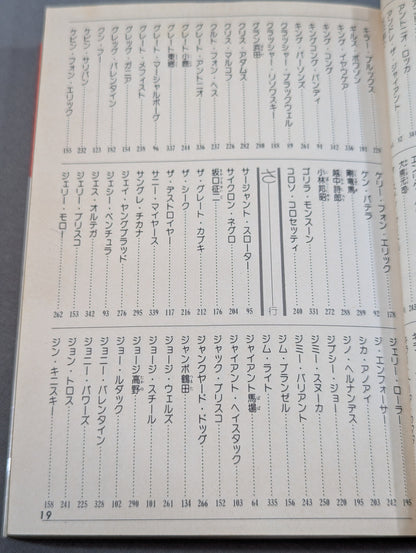 キラー・ブルックス……128
ギルス・ポアソン……192
キング・イヤウケア……236
キング・コング……142
キングコング・バンディ……91
キング・パーソンズ……261
クラッシャー・ブラックウェル……89
クラッシャー・リソワスキー……198
グラン浜田……298
クリス・アダムス……288
クリス・マルコフ……229
クルト・フォン・ヘス……232
グレート・アントニオ……337
グレート小鹿……244
グレート東郷……208
グレート・マーシャルボーグ……96
グレート・メフィスト……238
グレッグ・ガニア……214
グレッグ・バレンタイン……134
クン・フー……123
ケビン・サリバン……232
ケビン・フォン・エリック……155
ケリー・フォン・エリック……178
ケン・パテラ……92
剛竜馬……289
越中詩郎……288
小林邦昭……272
ゴリラ・モンスーン……331
コロソ・コロセッティ……240
さ行
サージャント・スローター……95
サイクロン・ネグロ……204
坂口征二……176
ザ・グレート・カブキ……212
ザ・シーク……216
ザ・デストロイヤー……117
サニー・マイヤース……339
サングレ・チカナ……295
ジェイ・ヤングブラッド……276
ジェシー・ベンチュラ……93
ジェス・オルテガ……342
ジェリー・ブリスコ……153
ジェリー・モロー……262
ジェリー・ローラー……195
ジ・エンフォーサー……242
シカ・アノアイ……203
ジノ・ヘルナンデス……195
ジプシー・ジョー……220
ジミー・スヌーカ……250
ジミー・バリアント……243
ジム・ブランゼル……156
ジム・ライト……335
ジャイアント馬場……64
ジャイアント・ヘイスタック……103
ジャック・ブリスコ……152
ジャンクヤード・ドッグ……266
ジャンボ鶴田……134
ジョージ・ウェルズ……261
ジョージ・スチール……101
ジョージ高野……290
ジョー・ルダック……102
ジョニー・バレンタイン……328
ジョニー・パワーズ……225
ジョン・トロス……241
ジン・キニスキー……158
19